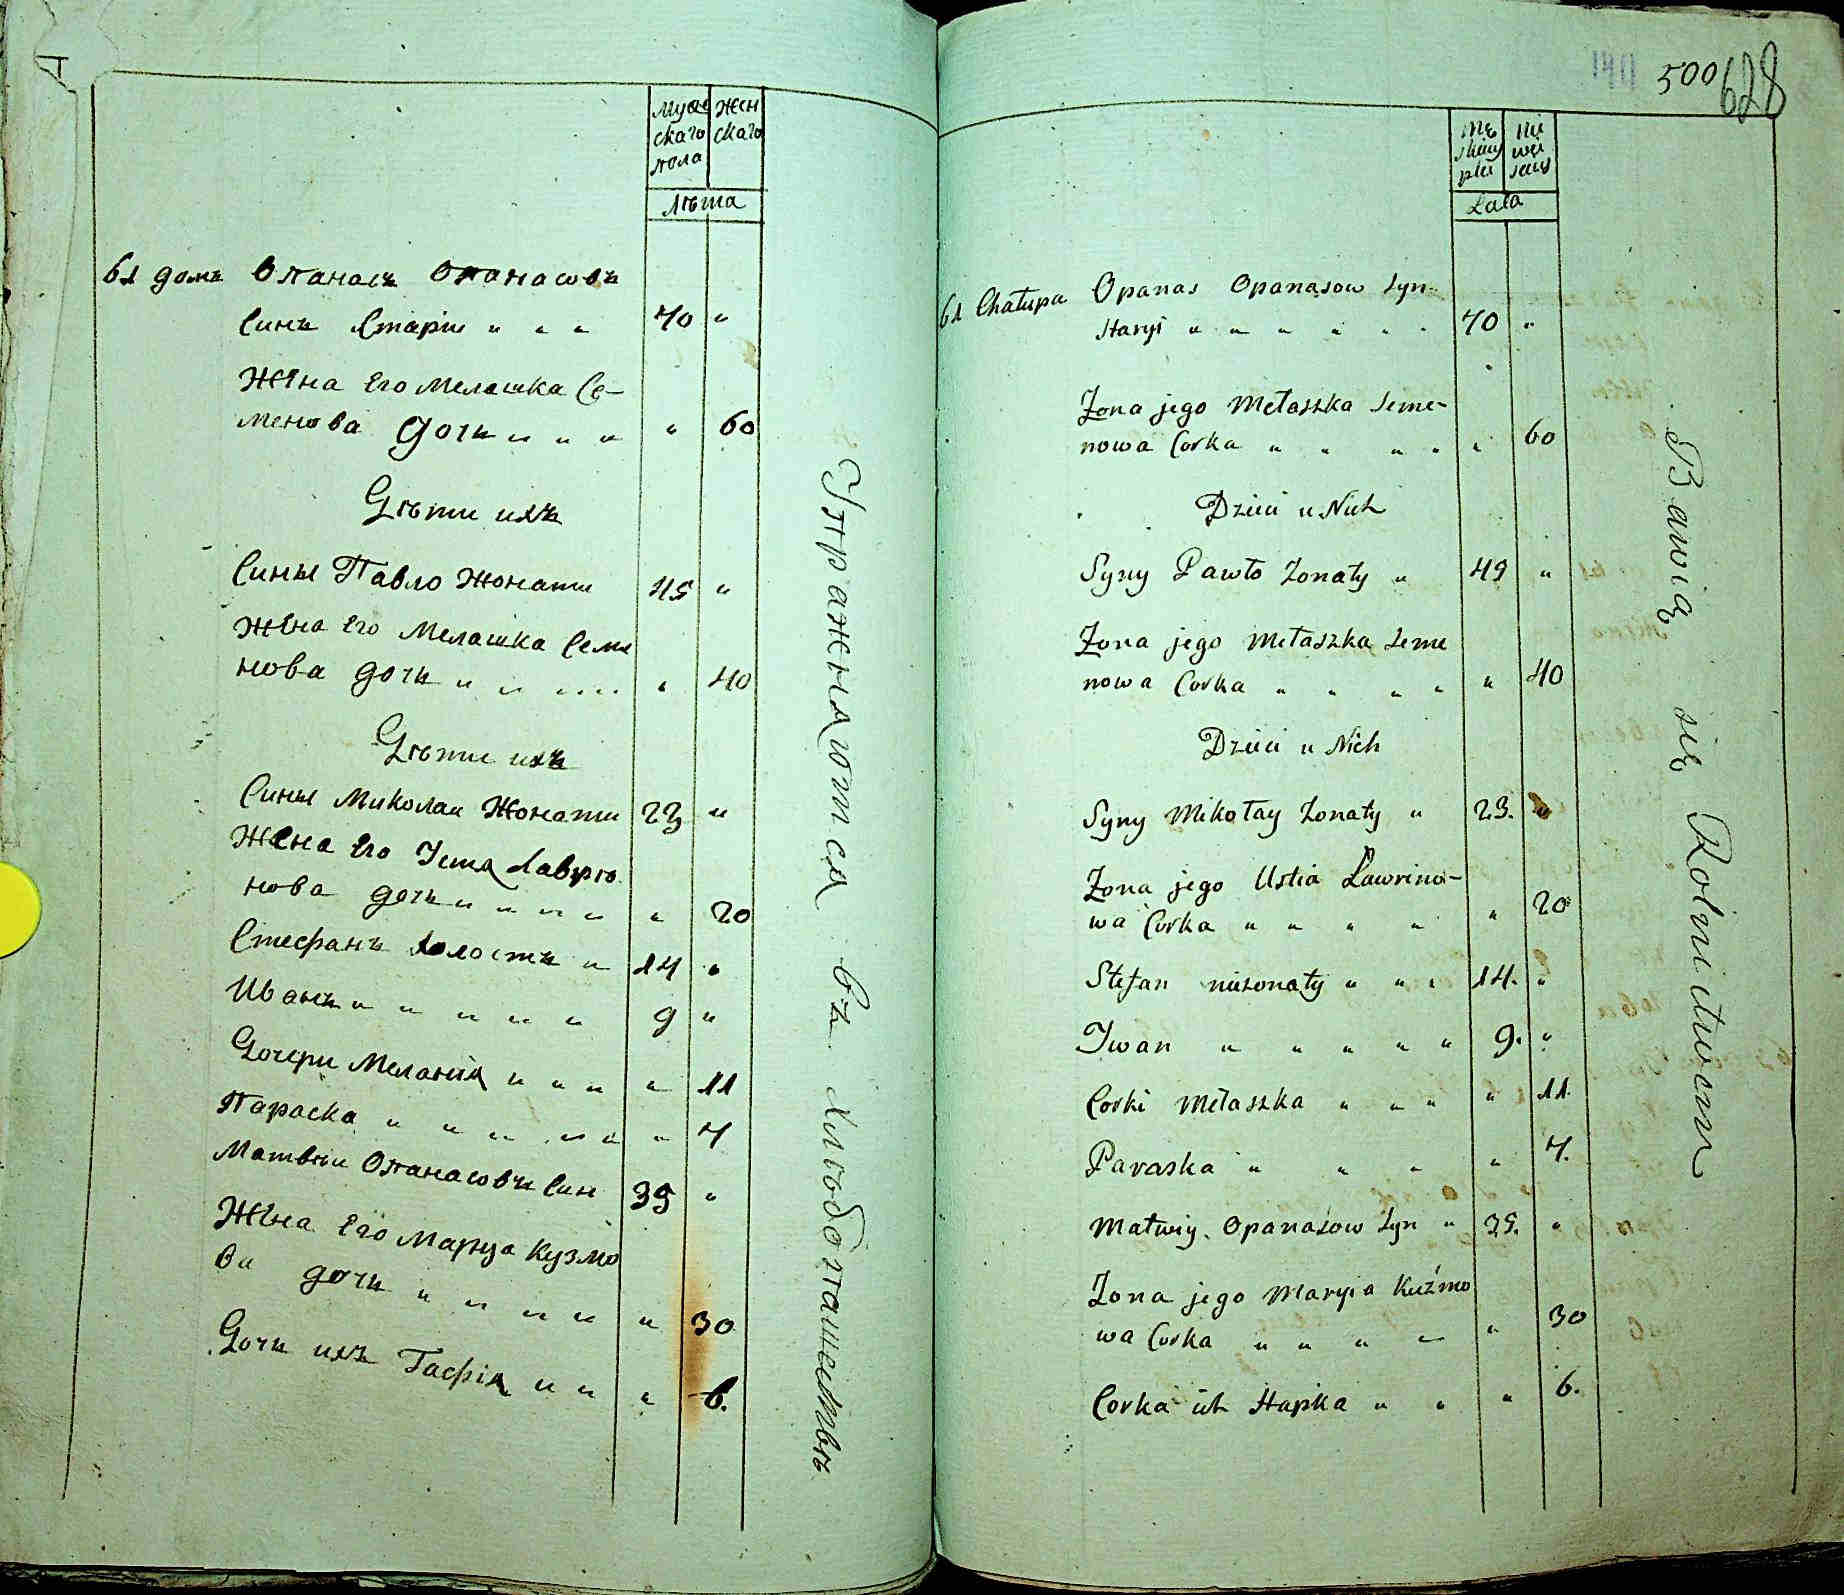 Муж Жен
скаго скаго
пола
Лѣта
61 домъ Опанасъ Опанасовъ
Синъ Старiи " " " 70 "
Жена Его Мелашка Се-
менова дочь " " " " 60
Дѣти ихъ
Сины Павло Жонати 45 "
Жена Его Мелашка Семе
нова дочь " " " " " 40
Дѣти ихъ
Сины Миколаи Жонати 23 "
Жена Его Устя Лаврѣ
нова дочь " " " " " 20
Стефанъ Холостъ " 14 "
Иванъ " " " " " 9 "
Дочери Меланiя " " " " 11
Параска " " " " " " 7
Матвѣи Опанасовъ Син 35 "
Жена Его Марія Кузмо
ва дочь " " " " " 30
Дочь ихъ Гафiя " " " 6.
Упражняются въ хлѣбопашествѣ
500 628
Mę Nie
skiey wie
płci sciey
Lata
61 Chałupa Opanas Opanasow Syn
Staryi " " " " " " 70 "
Zona jego Mełaszka Seme-
nowa Corka " " " " " 60
Dzieci u Nich
Syny Pawło Zonaty " 45 "
Zona jego Mełaszka Seme
nowa Corka " " " " " 40
Dzieci u Nich
Syny Mikołay Zonaty " 23. "
Zona jego Ustia Ławrino-
wa Corka " " " " " 20
Stefan niezonaty " " " 14. "
Iwan " " " " " 9. "
Corki Mełaszka " " " " 11.
Paraska " " " " 7.
Matwiy Opanasow Syn " 35. "
Zona jego Maryia Kuźmo
wa Corka " " " " " 30
Corka ich Hapka " " " 6.
Bawią się Rolnictwem